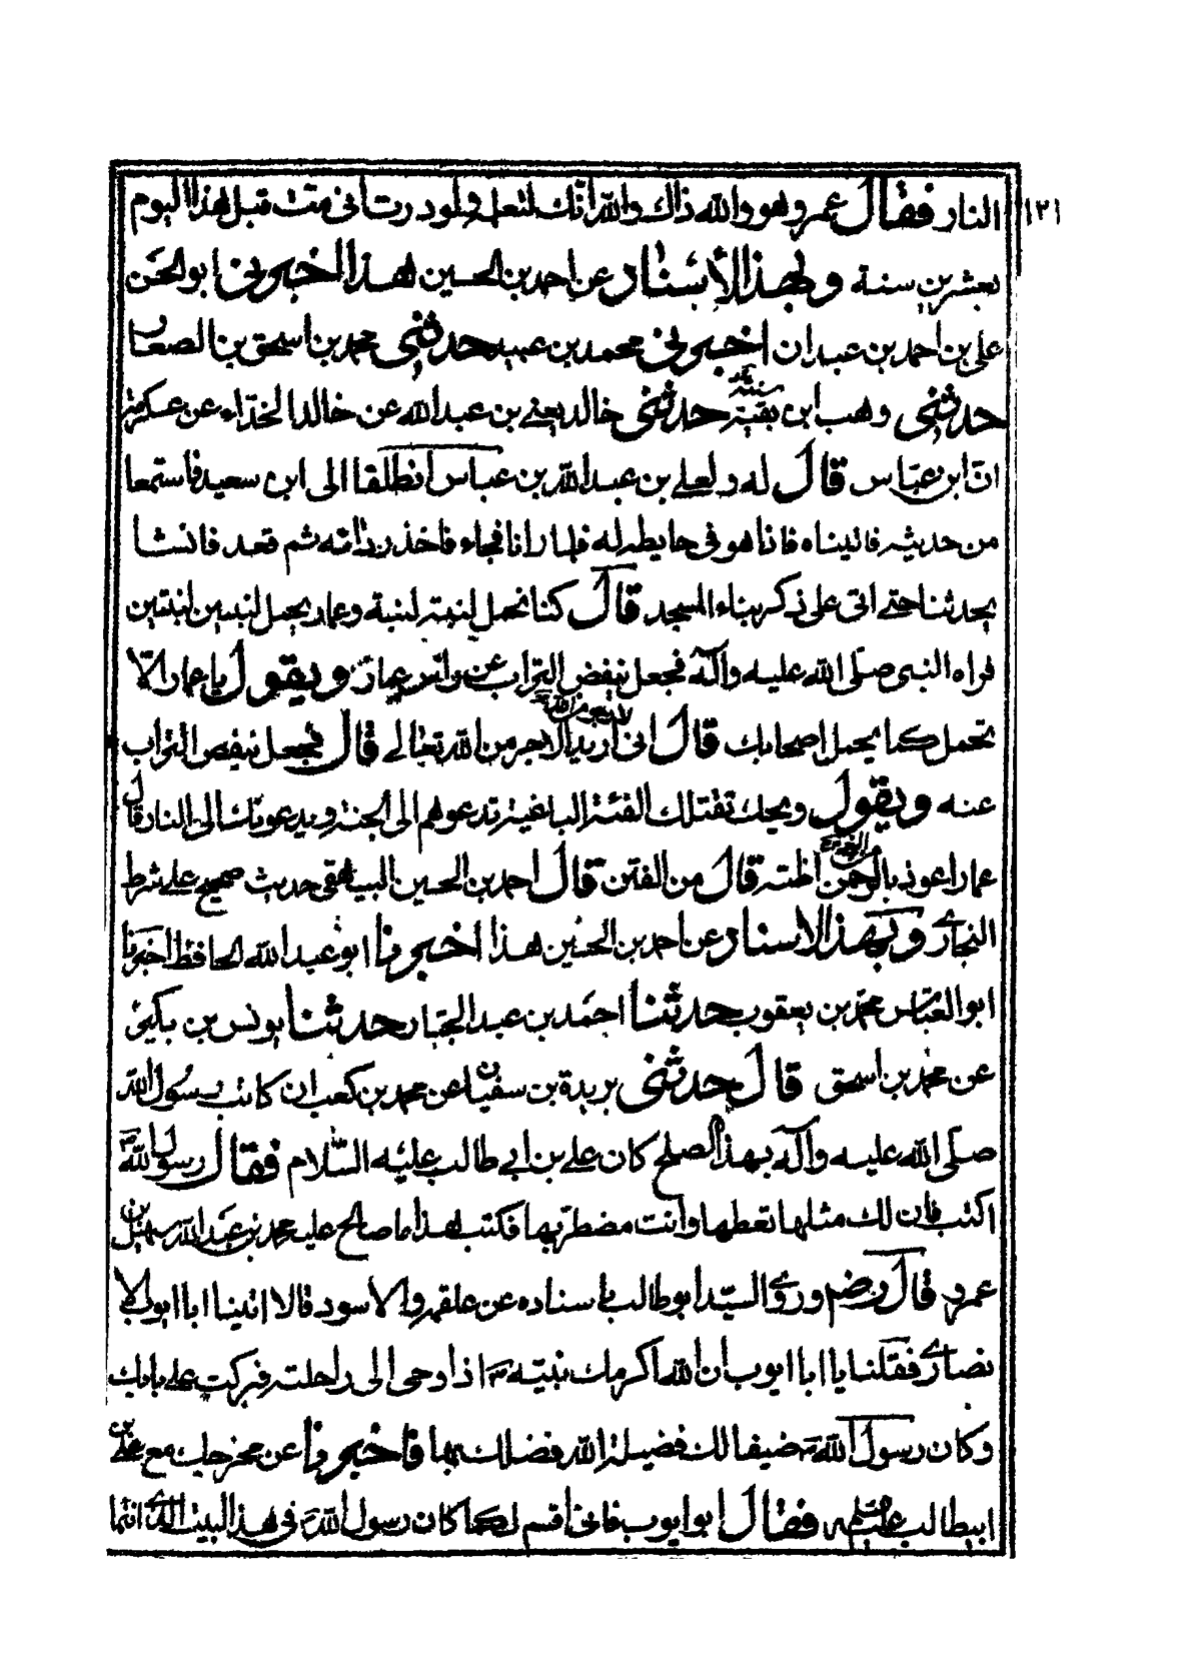 ١٢١
النار فقال عمرو هو والله ذاك والله انّك لتعلم ولوددت انى متّ قبل هذا اليوم
بعشرين سنة وبهذا الأسناد عن احمد بن الحسين هذا اخبرنى ابو الحسن
على بن احمد بن عبدان اخبرنى محمد بن عبيد حدثنى محمد بن اسحق بن الصغار
حدثنى وهب ابن بقيّة حدثنى خالد يعنى بن عبد الله عن خالد الحذّاء عن عكرمة
انّ ابن عبّاس قال له ولعلى بن عبد الله بن عباس انطلقا الى ابى سعيد فاستمعا
من حديثه فاتيناه فاذا هو فى حايط له فلما رانا فجاء فاخذ ردائه ثم قعد فانشا
يحدثنا حتى اتى على ذكر بناء المسجد قال كنا نحمل لبنة لبنة وعمار يحمل لبنتين لبنتين
فراه النبى صلّى الله عليه وآله فجعل ينفض التراب عن راس عمار ويقول يا عمار الّا
تحمل كما يحمل اصحابك قال انى اريد الاجر من الله تعالى قال فجعل ينفض التراب
عنه ويقول ويحك تقتلك الفئة الباغية تدعوهم الى الجنة ويدعونك الى النار قال
عمار اعوذ بالرحمن اظنه قال من الفتن قال احمد بن الحسين البيهقى حديث صحيح على شرط
البخارى وبهذا الاسناد عن احمد بن الحسين هذا اخبرنا ابو عبد الله الحافظ اخبرنا
ابو العبّاس محمّد بن يعقوب حدثنا احمد بن عبد الجبّار حدثنا يونس بن بكير
عن محمد بن اسحق قال حدثنى بريدة بن سفيان عن محمد بن كعب ان كاتب رسول الله
صلّى الله عليه وآله بهذا الصلح كان على بن ابى طالب عليه السّلام فقال رسول الله
اكتب فان لك مثلها تعطها وانت مضطر بها فكتب هذا ما صالح عليه محمد بن عبد الله سهيل بن
عمرو قال رضى وروى السيّد ابو طالب باسناده عن علقمة والاسود قالا اتينا ابا ايوب الا
نصارى فقلنا يا ابا ايوب ان الله اكرمك بنبيّه اذ اوحى الى راحلته فبركت على بابك
وكان رسول الله ضيفا لك فضيلة الله فضلك بها فاخبرنا عن مخرجك مع على بن
ابيطالب فقال ابو ايوب فانى اقسم لكما كان رسول الله فى هذا البيت الذى انتما